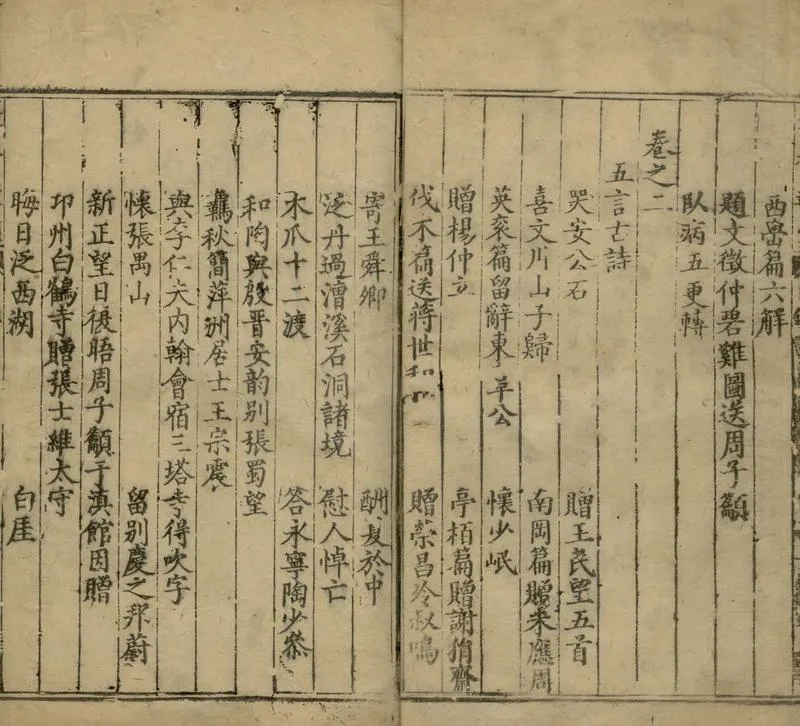 西嵒篇六解
題文徵仲碧雞圖送周子籲
臥病五更轉
卷之二
五言古詩
哭安公石 贈王民望五首
喜文川山子歸 南岡篇贈朱應周
英袞篇留辭東公 懷少岷
贈楊仲立 亭栢篇贈謝狷齋
伐不篇送蔣世和 贈榮昌冷叔鳴
寄王舜卿 酬於中
泛丹過漕溪石洞諸境 慰人悼亡
木爪十二渡 荅永寧陶少叅
和陶與殷晉安韵别張蜀望
秋簡萍洲居士王宗
與李仁夫内翰會宿三塔寺得吹字
懷張禺山 留别慶之邦蔚
新正望日後晤周子籲于滇館因贈
邛州白鶴寺贈張士維太守
晦日泛西湖 白厓